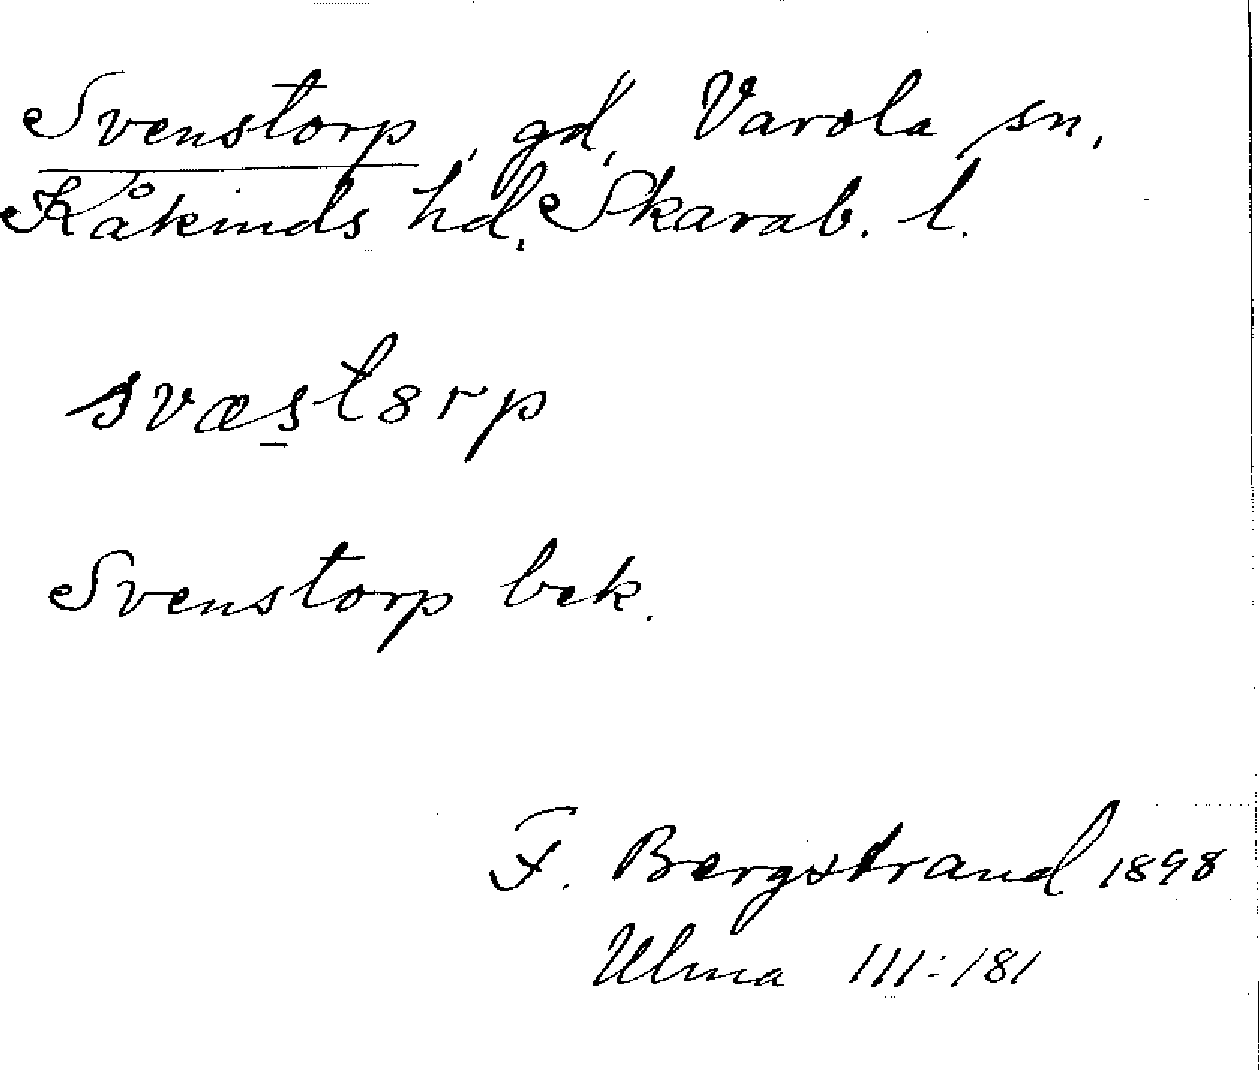 Svenstorp, gd, Varola sn,
Kåkinds hd, Skarab. l.
svæst8rp
Svenstorp bek.
F. Bergstrand 1898
Ulma 111:181